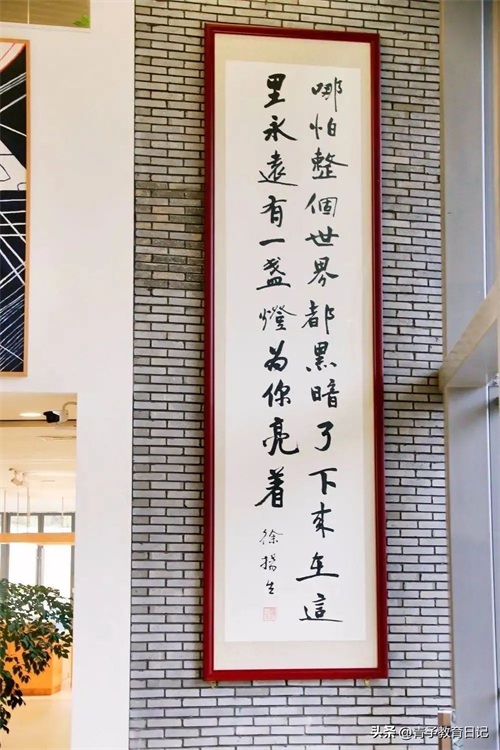 哪怕整個世界都黑暗了下來在這
里永遠有一盏燈为你亮着
徐揚生
头条@青子教育日记